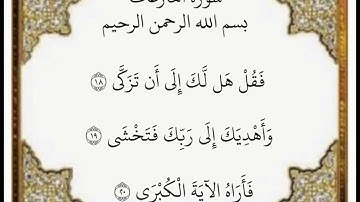 سورة النازعات
بسم الله الرحمن الرحيم
فَقُلْ هَل لَّكَ إِلَى أَن تَزَكَّى ﴿١٨﴾
وَأَهْدِيَكَ إِلَى رَبِّكَ فَتَخْشَى ﴿١٩﴾
فَأَرَاهُ الْآيَةَ الْكُبْرَى ﴿٢٠﴾